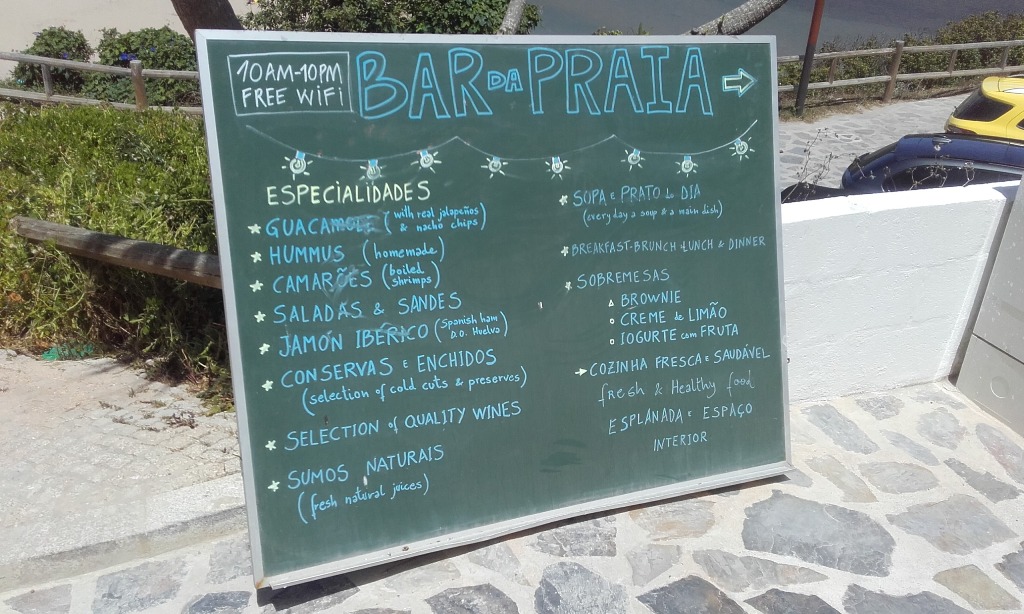 10AM-10PM
FREE WiFi
BAR DA PRAIA
ESPECIALIDADES
GUACAMOLE (with real jalapeños
& nacho chips)
HUMMUS (homemade)
CAMARÕES (boiled
shrimps)
SALADAS & SANDES
JAMÓN IBÉRICO (Spanish ham
D.O. Huelva)
CONSERVAS E ENCHIDOS
(selection of cold cuts & preserves)
SELECTION of QUALITY WINES
SUMOS NATURAIS
(fresh natural juices)
SOPA E PRATO do DIA
(every day a soup & a main dish)
BREAKFAST-BRUNCH-LUNCH & DINNER
SOBREMESAS
BROWNIE
CREME de LIMÃO
IOGURTE com FRUTA
COZINHA FRESCA E SAUDÁVEL
fresh & Healthy food
ESPLANADA E ESPAÇO
INTERIOR